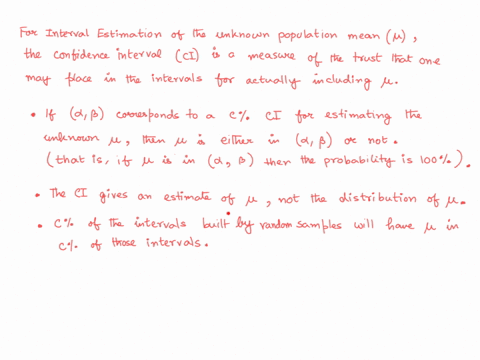 For Interval Estimation of the unknown population mean (μ),
the confidence interval (CI) is a measure of the trust that one
may place in the intervals for actually including μ.
• If (α, β) corresponds to a C% CI for estimating the
unknown μ, then μ is either in (α, β) or not.
(that is, if μ is in (α, β) then the probability is 100%).
• The CI gives an estimate of μ, not the distribution of μ.
• C% of the intervals built by random samples will have μ in
C% of those intervals.